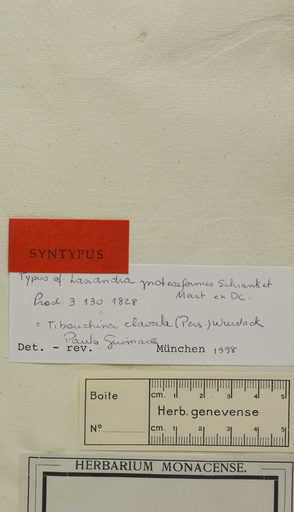 SYNTYPUS
Typus of Lasiandra proteaeformis Schrank et
Mart ex DC.
Prod. 3: 130. 1828
= Tibouchina clavata (Pers.) Wurdack
Paulo Guimarães
Det. - rev. München 1998
Boite
Nº
cm. 1 2 3 4 5
Herb. genevense
cm. 1 2 3 4 5
HERBARIUM MONACENSE.